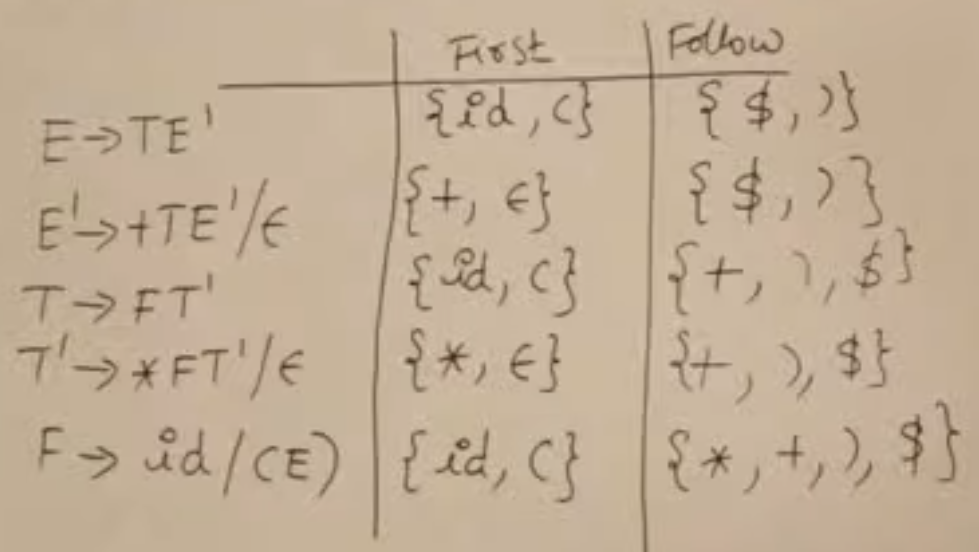 First Follow
E→TE' {id, (} {$, )}
E'→+TE'/ϵ {+, ϵ} {$, )}
T→FT' {id, (} {+, ), $}
T'→*FT'/ϵ {*, ϵ} {+, ), $}
F→ id/(E) {id, (} {*, +, ), $}